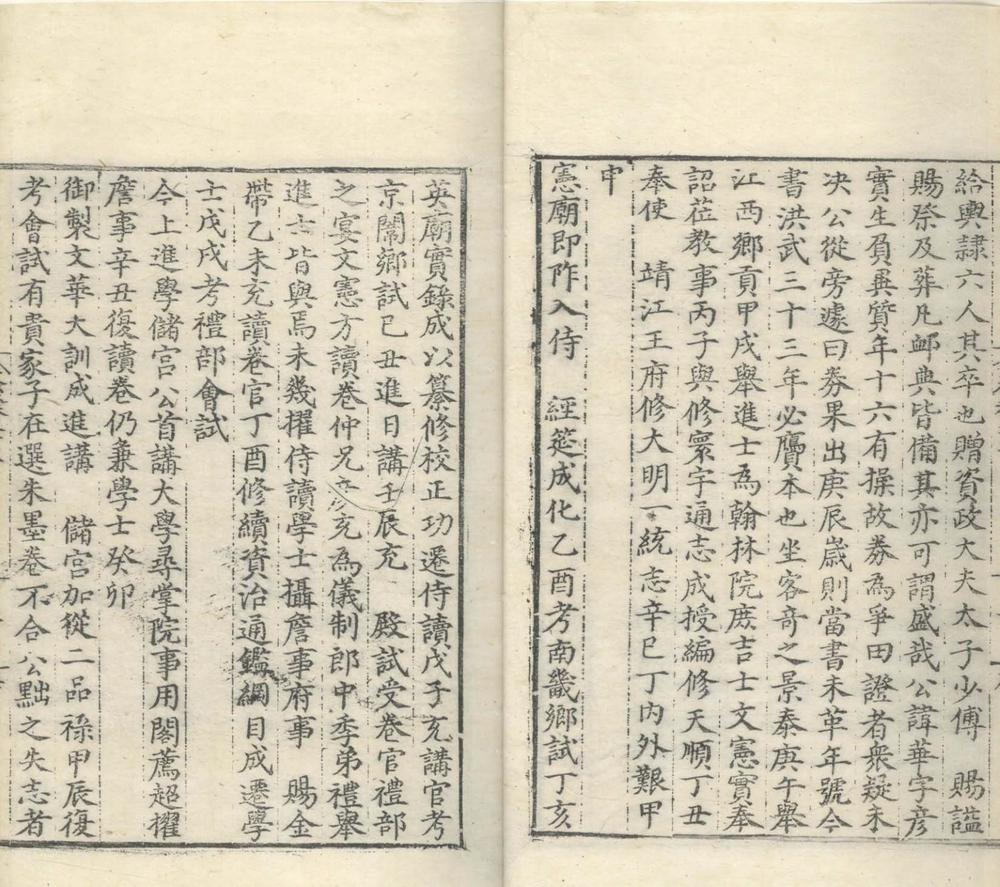 給輿隷六人其卒也贈資政大夫太子少傅　賜諡
賜祭及葬凡衈典皆備其亦可謂盛哉公諱華字彦
實生負異質年十六有操故券為爭田證者衆疑未
決公從旁遽曰券果出庚辰歲則當書未革年號今
書洪武三十三年必贋本也坐客奇之景泰庚午舉
江西鄉貢甲戌舉進士為翰林院庶吉士文憲實奉
詔莅教事丙子與修寰宇通志成授編修天順丁丑
奉使　靖江王府修大明一統志辛巳丁内外艱甲
申
憲廟即阼入侍　經筵成化乙酉考南畿鄉試丁亥
英廟實錄成以纂修校正功遷侍讀戊子充講官考
京闈鄉試己丑進日講壬辰充　殿試受卷官禮部
之宴文憲方讀卷仲兄彦充為儀制郎中季弟禮舉
進士皆與焉未幾擢侍讀學士攝詹事府事　賜金
帶乙未充讀卷官丁酉修續資治通鑑綱目成遷學
士戊戌考禮部會試
今上進學儲宮公首講大學尋掌院事用閣薦超擢
詹事辛丑復讀卷仍兼學士癸卯
御製文華大訓成進講　儲宮加從二品祿甲辰復
考會試有貴家子在選朱墨卷不合公黜之失志者